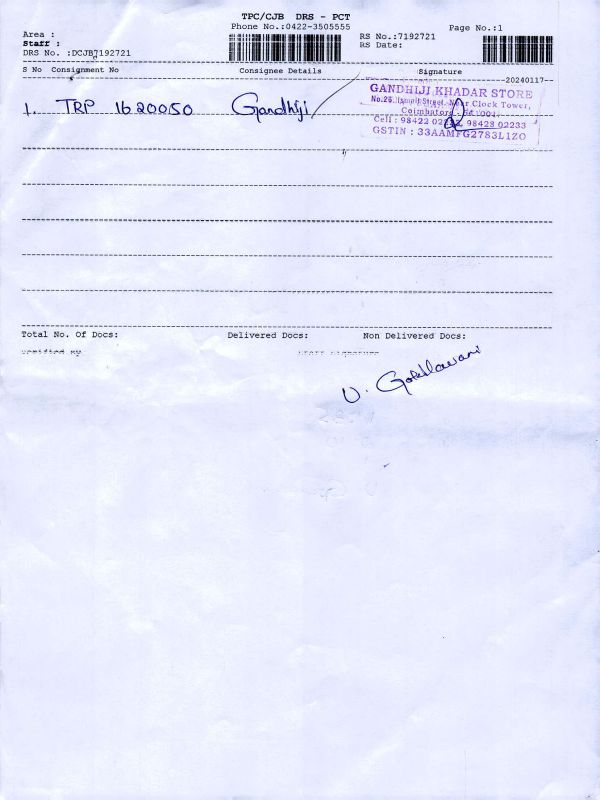 TPC/CJB DRS - PCT
Phone No.:0422-3505555
Page No.:1
Area :
Staff :
DRS No. :DCJB7192721
RS No.:7192721
RS Date:
S No Consignment No Consignee Details Signature
20240117
1. TRP 16200150 Gandhiji
GANDHIJI KHADAR STORE
No.26, Street, Near Clock Tower,
Coimbatore
Cell : 98422 02233, 98428 02233
GSTIN : 33AAMFG2783L1ZO
Total No. Of Docs: Delivered Docs: Non Delivered Docs:
Verified By Staff Signature